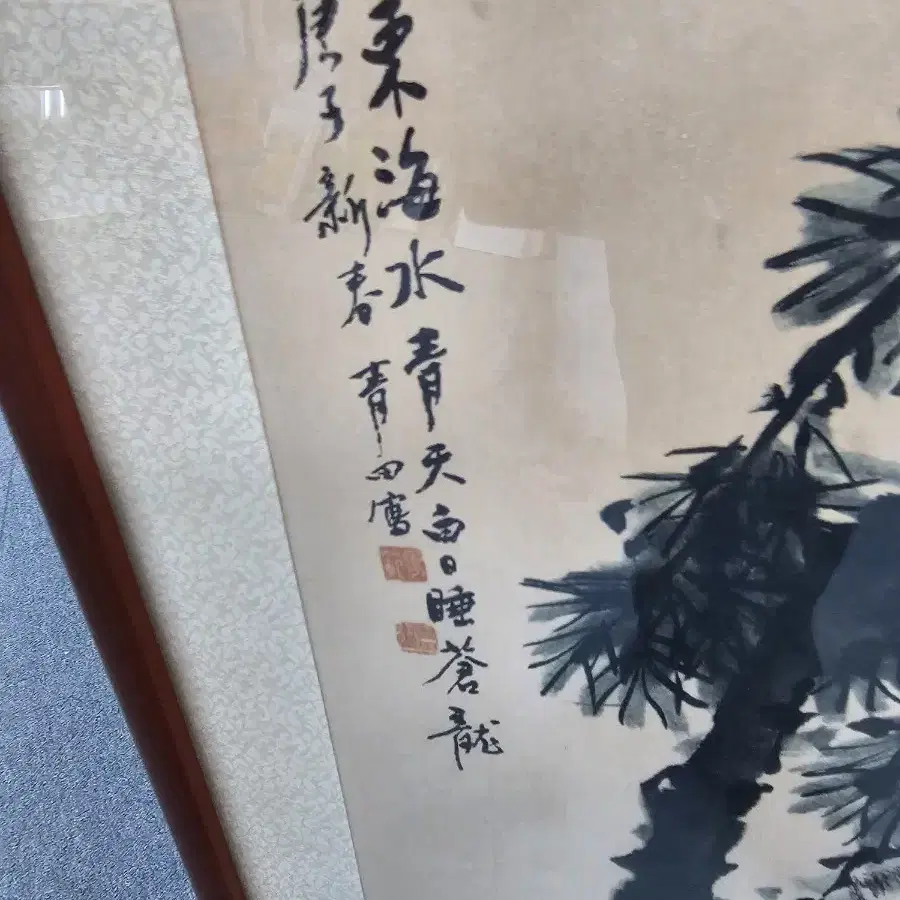 東海水青天白日睡蒼龍
庚子新春青田寫